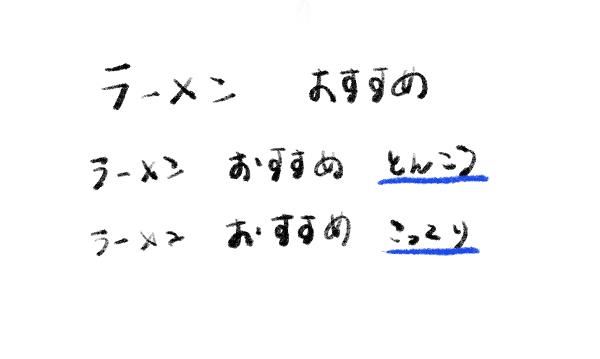 ラーメン おすすめ
ラーメン おすすめ とんこつ
ラーメン おすすめ こってり